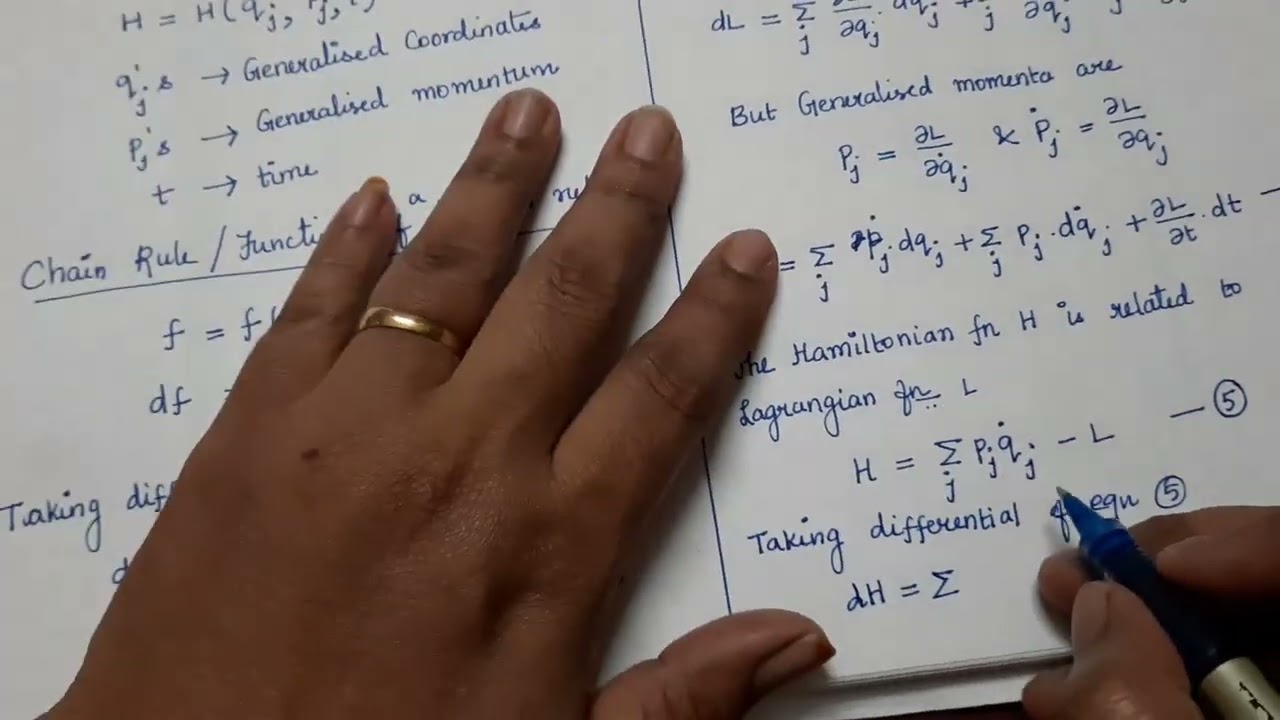 H = H(qj, Pj, t
qj's → Generalised Coordinates
Pj's → Generalised momentum
t → time
Chain Rule / Functi f a
f = f(
df
Taking dif
dL = Σj ∂qj dqj + j ∂q̇j
But Generalised momenta are
Pj = ∂L/∂q̇j & Ṗj = ∂L/∂qj
= Σj ṗj.dqj + Σj Pj.dq̇j + ∂L/∂t.dt —
the Hamiltonian fn H is related to
Lagrangian fn L
H = Σj Pj q̇j - L — ⑤
Taking differential of equ ⑤
dH = Σ